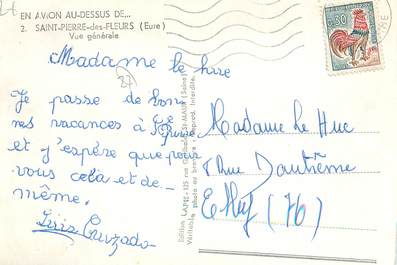 EN AVION AU-DESSUS DE...
2. SAINT-PIERRE-des-FLEURS (Eure)
Vue générale
0,30
Madame le hure
27
Je passe de bon
nes vacances à St Pierre
et j'espère que pour
vous cela et de
même.
Cruzado
Edition LAPIE - 135 rue St-MAUR (Seine)
Véritable photo au bromure - Reprod. Interdite.
Madame Le Huc
8 Rue Dautrême
Elbeuf (76)